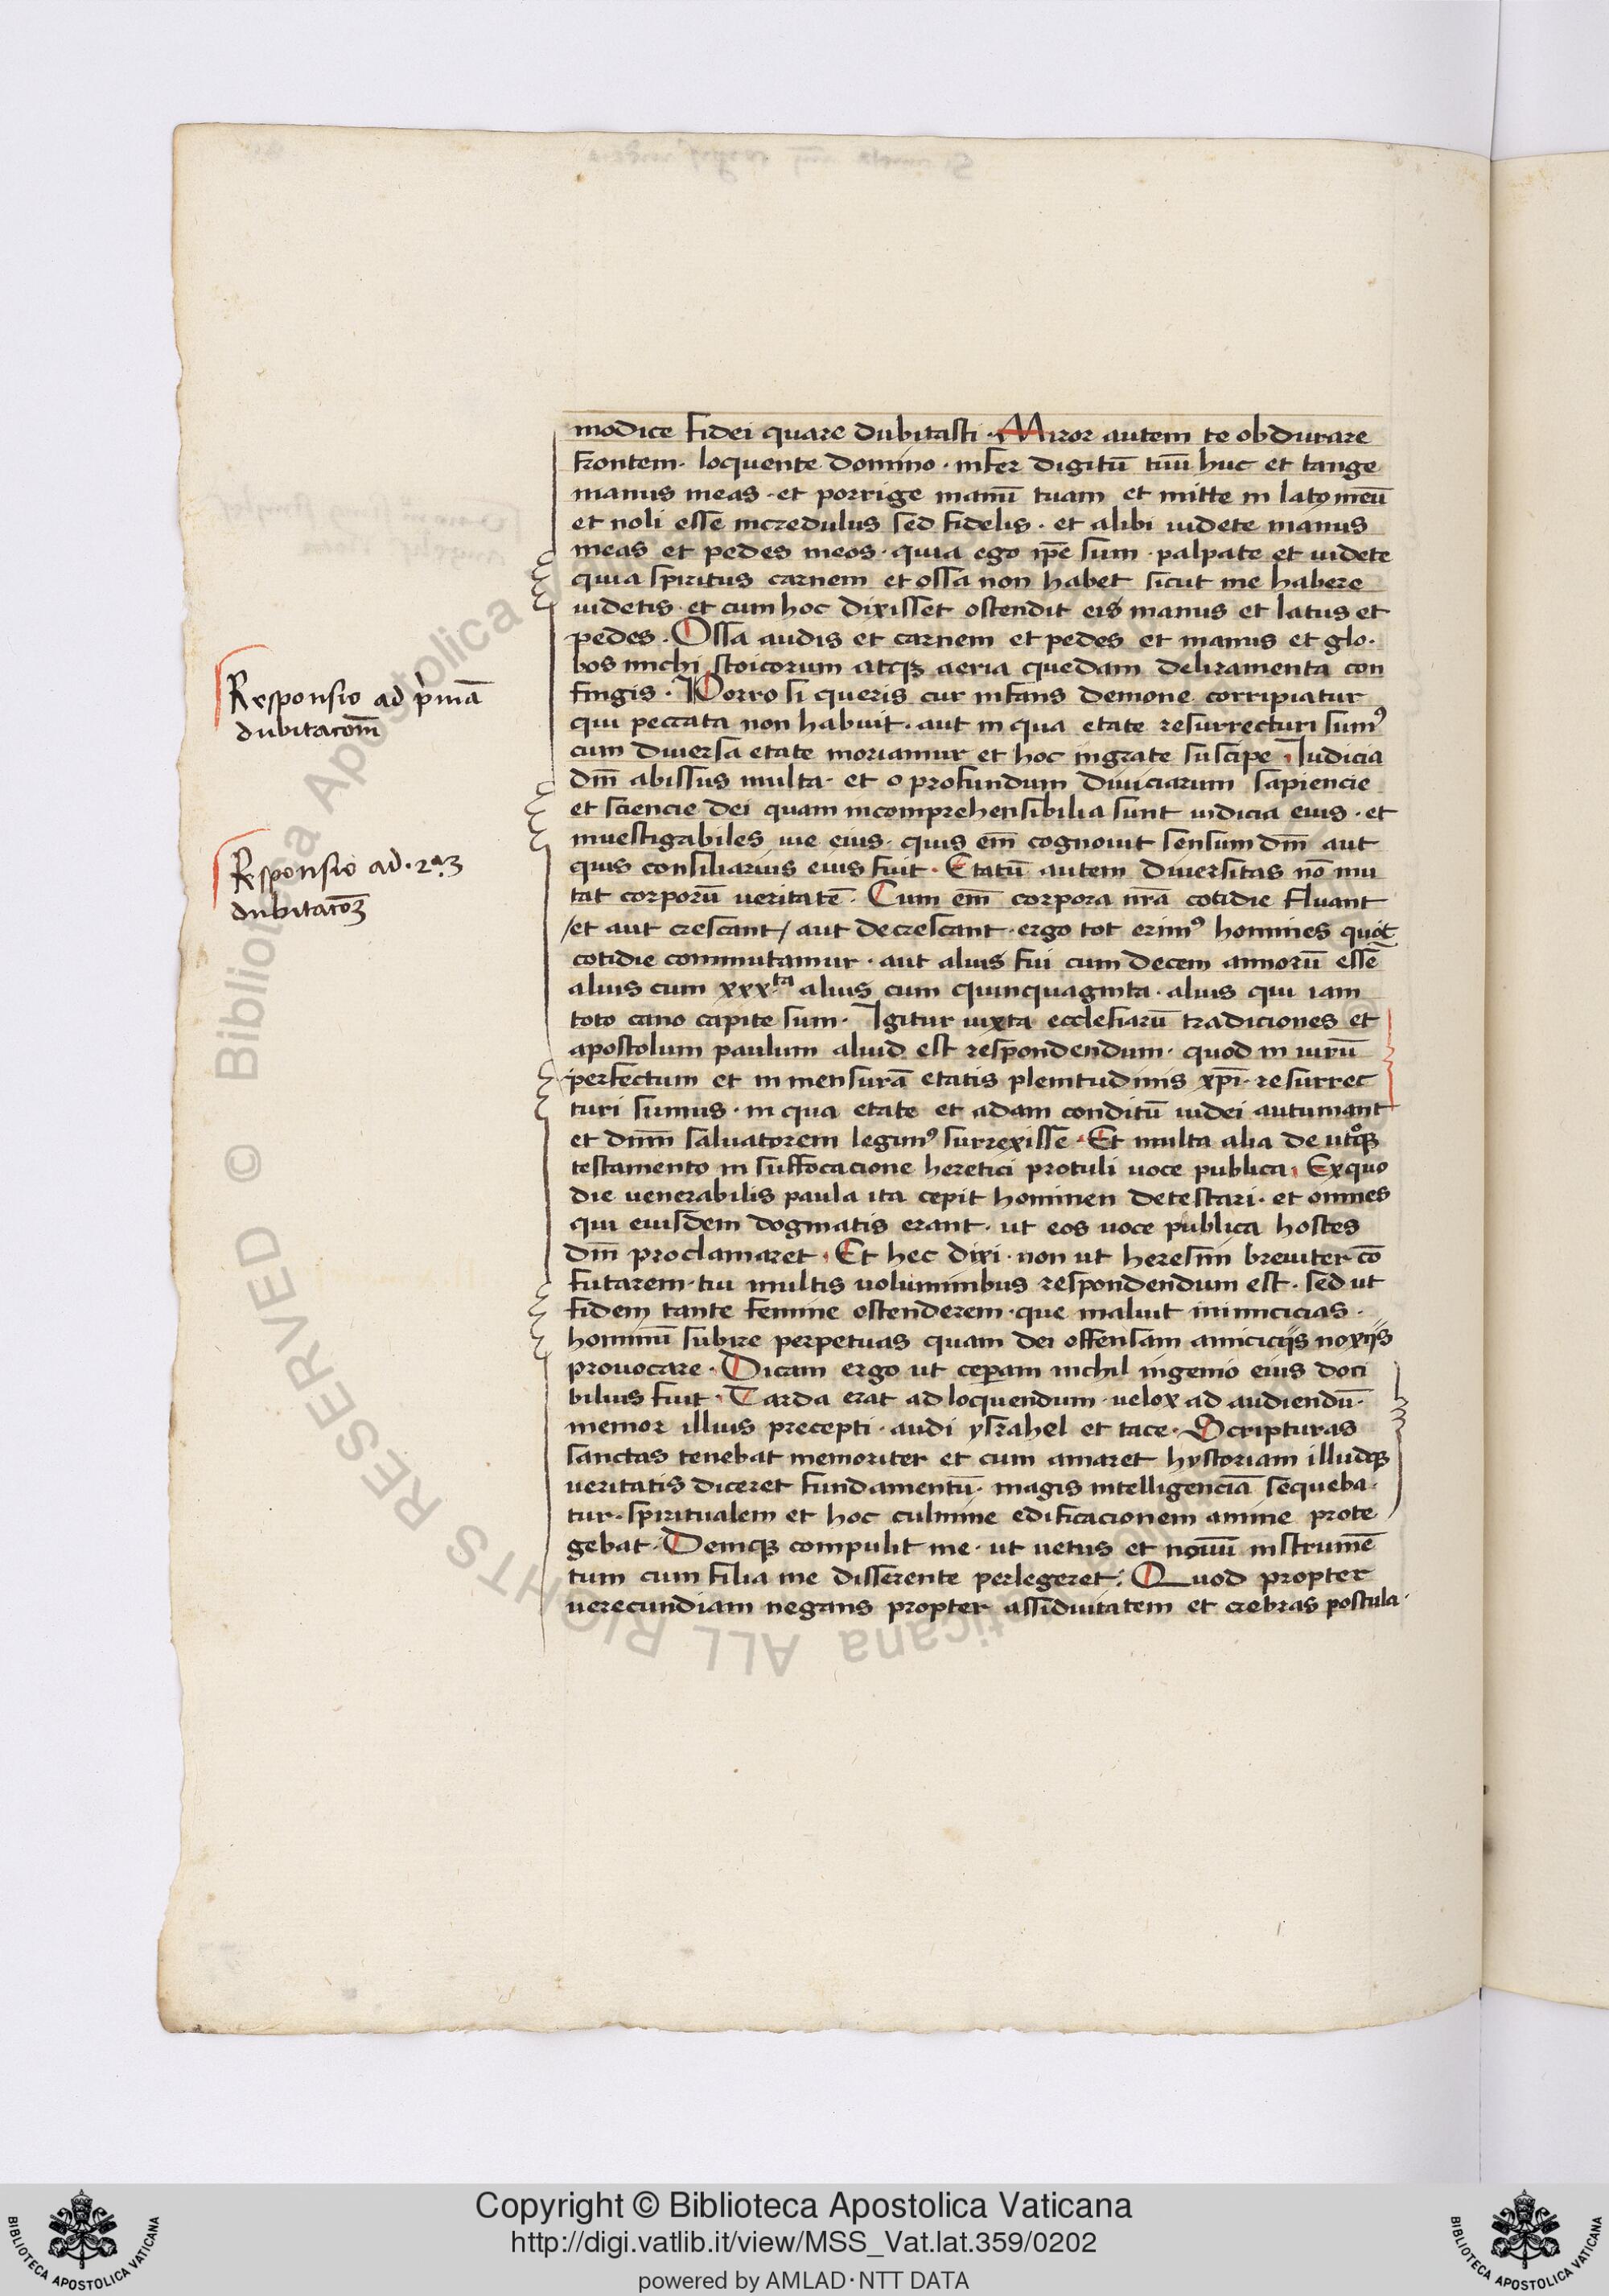 modice fidei quare dubitasti · Miror autem te obdurare
frontem · loquente domino · infer digitū tuū huc et tange
manus meas · et porrige manū tuam et mitte in latꝰ meū
et noli esse incredulus sed fidelis · et alibi uidete manus
meas et pedes meos · quia ego ip̄e sum · palpate et uidete
quia spiritus carnem et ossa non habet sicut me habere
uidetis · et cum hoc dixisset ostendit eis manus et latus et
pedes · Ossa audis et carnem et pedes et manus et glo·
bos michi stoicorum atqꝫ aeria quedam deliramenta con
fingis · Porro si queris cur infans demone corripiatur
qui peccata non habuit · aut in qua etate resurrecturi sumꝰ
cum diuersa etate moriamur et hoc ingrate suscipe · Iudicia
dn̄i abissus multa · et o profundum diuiciarum sapiencie
et sciencie dei quam incomprehensibilia sunt iudicia eius · et
inuestigabiles uie eius · quis em̄ cognouit sensum dn̄i aut
quis consiliarius eius fuit · Etatū autem diuersitas nō mu
tat corporū ueritatē · Cum em̄ corpora nr̄a cotidie fluant
/et aut crescant/ aut decrescant · ergo tot erimꝰ homines quot
cotidie commutamur · aut alius fui cum decem annorū essē
alius cum xxx·ta alius cum quinquaginta · alius qui iam
toto cano capite sum · Igitur iuxta ecclesiarū tradiciones et
apostolum paulum aliud est respondendum · quod in uirū
perfectum et in mensurā etatis plenitudinis xp̄i · resurrec
turi sumus · in qua etate et adam conditū iudei autumant
et dnm̄ saluatorem legimꝰ surrexisse · Et multa alia de utroqꝫ
testamento in suffocacione heretici protuli uoce publica · Exquo
die uenerabilis paula ita cepit hominen detestari · et omnes
qui eiusdem dogmatis erant · ut eos uoce publica hostes
dn̄i proclamaret · Et hec dixi · non ut heresim breuiter cō
futarem · cui multis uoluminibus respondendum est · sed ut
fidem tante femine ostenderem · que maluit inimicicias ·
hominū subire perpetuas quam dei offensam amiciciis noxiis
prouocare · Dicam ergo ut ceperam nichil ingenio eius doci
bilius fuit · Tarda erat ad loquendum · uelox ad audiendū ·
memor illius precepti · audi ysrahel et tace · Scripturas
sanctas tenebat memoriter et cum amaret hystoriam illudqꝫ
ueritatis diceret fundamentū · magis intelligenciā sequeba·
tur · spiritualem et hoc culmine edificacionem anime prote
gebat · Deniqꝫ compulit me · ut uetus et nouū instrumē
tum cum filia me disserente perlegeret · Quod propter
uerecundiam negans propter assiduitatem et crebras postula·
Responsio ad p̀imā
dubitacōm̄
Responsio ad · 2ªꝫ
dubitacōꝫ
© Biblioteca Apostolica Vaticana ALL RIGHTS RESERVED
Copyright © Biblioteca Apostolica Vaticana
http://digi.vatlib.it/view/MSS_Vat.lat.359/0202
powered by AMLAD·NTT DATA
BIBLIOTECA APOSTOLICA VATICANA
BIBLIOTECA APOSTOLICA VATICANA